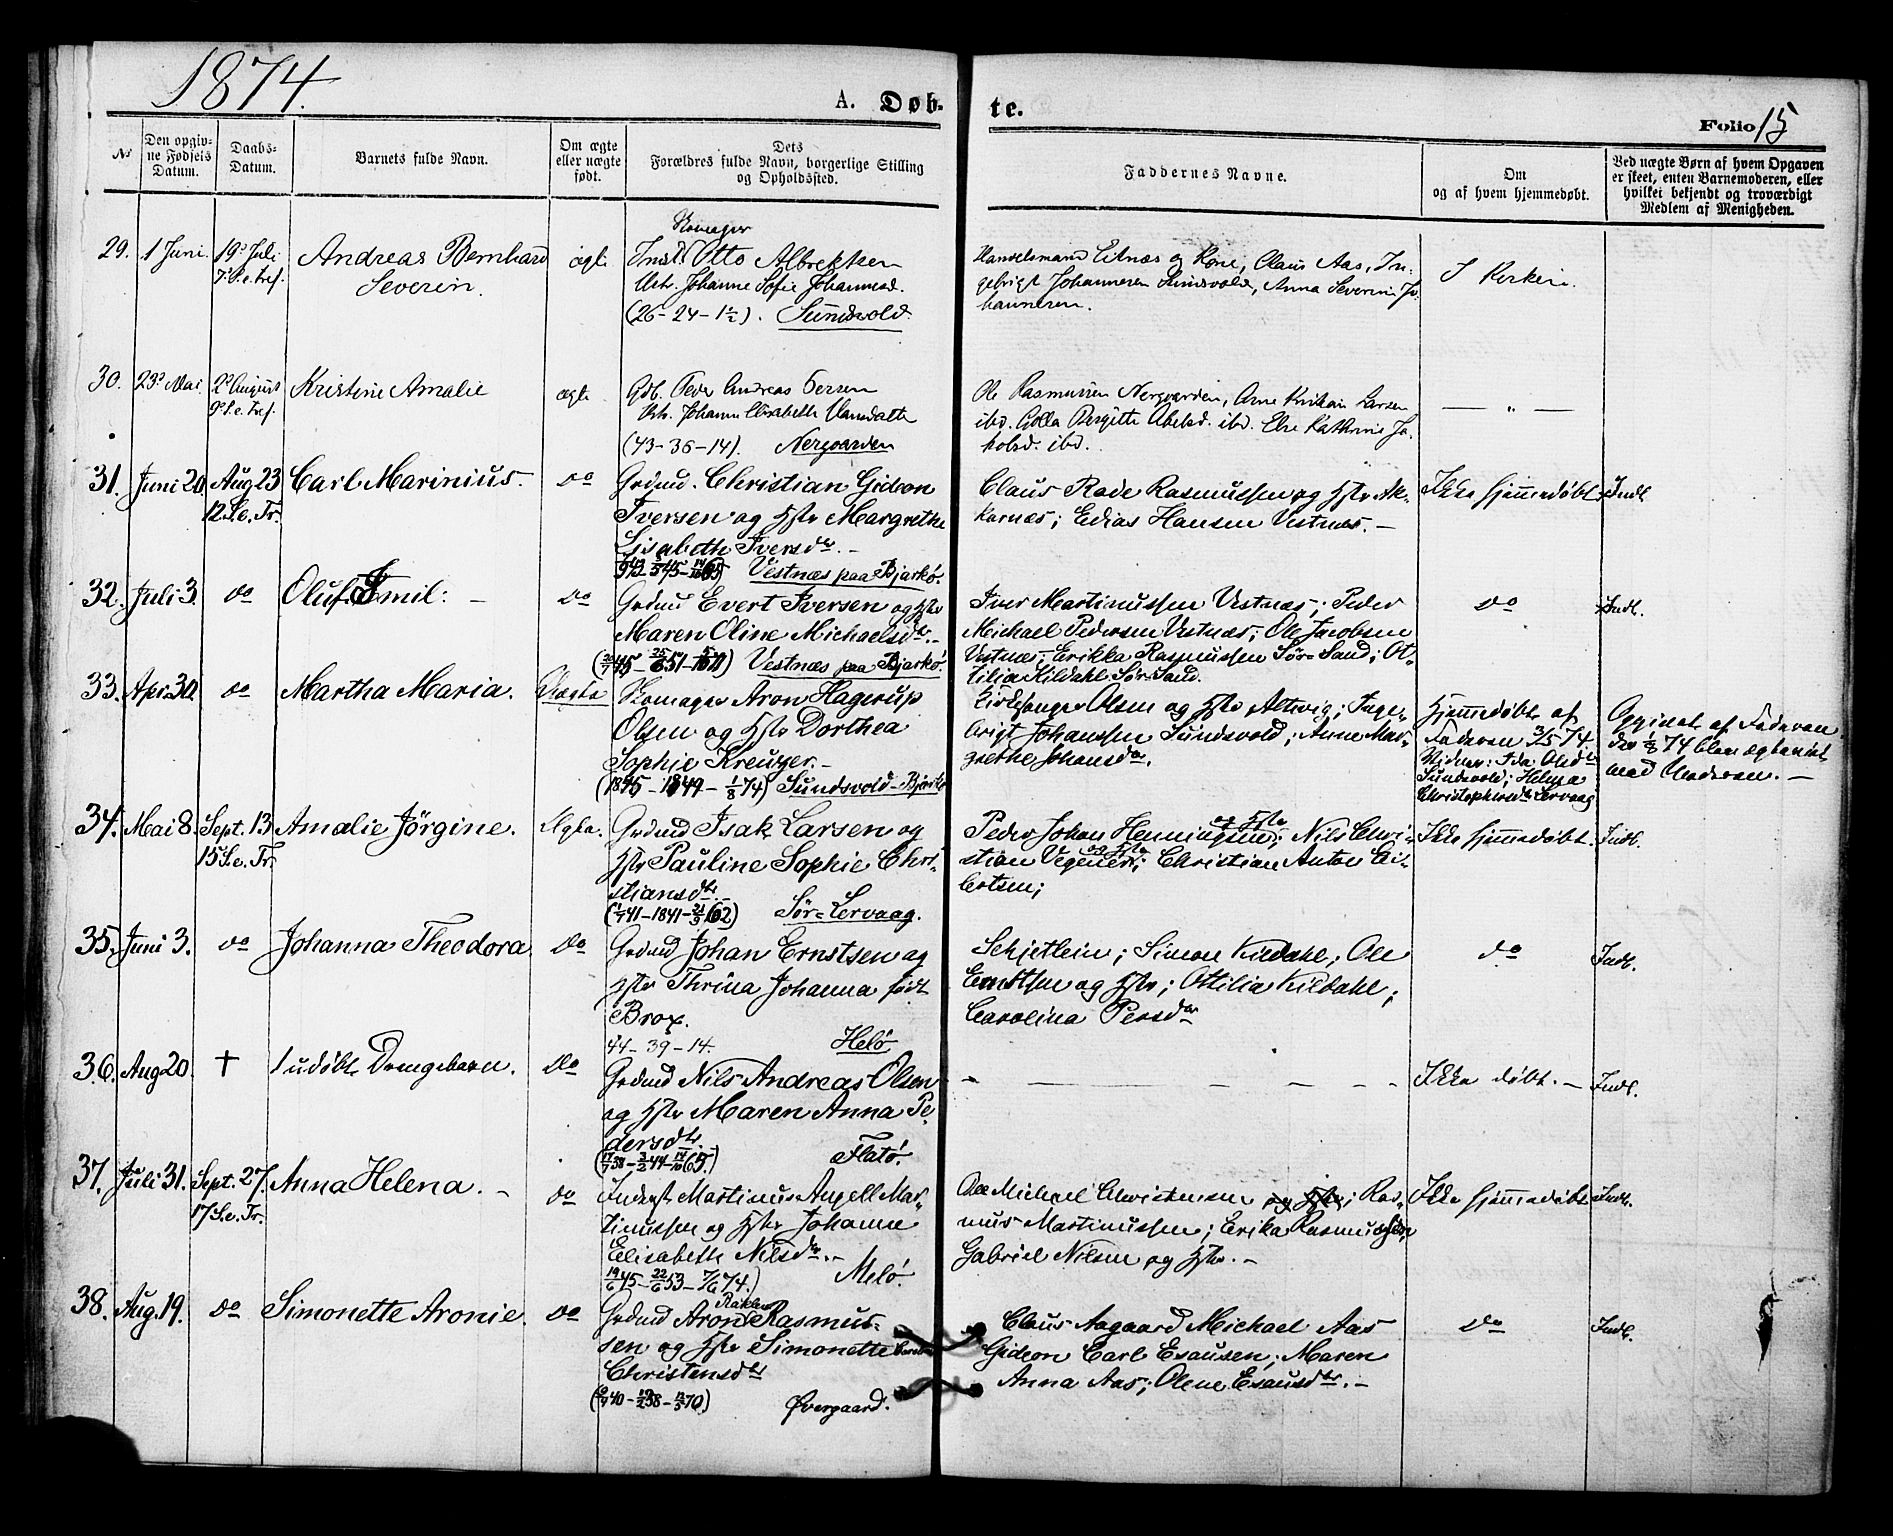 1874.
A. Døb-
te.
Folio 15
No
Den opgiv-
ne Fødsels
Datum.
Daabs-
Datum.
Barnets fulde Navn.
Om ægte
eller uægte
født.
Dets
Forældres fulde Navn, borgerlige Stilling
og Opholdssted.
Faddernes Navne.
Om
og af hvem hjemmedøbt.
Ved uægte Børn af hvem Opgaven
er skeet, enten Barnemoderen, eller
hvilket bekjendt og troværdigt
Medlem af Menigheden.
29. 1 Juni. 19 Juli
7 S. e. Tref.
Andreas Bernhard
Severin.
ægte
Inds. Otto Albrektsen
Johanne Sofie Johannesd.
(26-24-1½). Sundsvold.
Handelsmand Eilnæs og Kone, Claus Aas, In-
gebrigt Johannesen Sundsvold, Anna Severine Jo-
hannesen.
I Kirken.
30. 23 Mai. 2 August
9 S. e. Tref.
Kristine Amalie
ægte
Gdb. Peder Andreas
Johanna Elisabeth
(43-36-14). Nergaarden
Ole Rasmussen Nergaarden, Arne Kristian Larsen
ibd. Golla Birgitte Abelsd. ibd. Else Kathrine Ja-
kobsd. ibd.
— " —
31. Juni 20. Aug 23
12 S. e. Tr.
Carl Marinius.
do
Grdmd. Christian Gideon
Iversen og Hstr Margrethe
Lisabeth Iversdtr. —
Vestnæs paa Bjarkø.
Claus Rade Rasmussen og Hstr Ak-
karnæs; Edias Hansen Vestnæs. —
Ikke hjemmedøbt.
Indl.
32. Juli 3. do
Oluf Emil: —
do
Grdmd Evert Iversen og Hstr
Maren Oline Michaelsdtr. —
Vestnæs paa Bjarkø.
Iver Martinussen Vestnæs; Peder
Michael Pedersen Vestnæs; Ole Jacobsen
Vestnæs; Erikka Rasmussen Sør-Sand; Ot-
tilia Kildahl Sør-Sand.
do
Indl.
33. Apr. 30. do
Martha Maria.
Uægte
Skomager Aron Hagerup
Olsen og Hstr Dorthea
Sophie Kreutzer. —
(1845-1849-1/8 74) Sundsvold-Bjarkø
Kirkesanger Olsen og Hstr Altevig; Inge-
brigt Johanssen Sundsvold; Anne Mar-
grethe Johansdtr.
Hjemmedøbt af
Faderen 3/5 74.
Vidner: Ida Olsdtr
Sundsvold; Helena
Christophersdtr Lervaag
Opgivet af Faderen
der 74 blev ægteviet
med Moderen. —
34. Mai 8. Sept. 13
15 S. e. Tr.
Amalie Jørgine.
Ægte.
Grdmd Isak Larsen og
Hstr Pauline Sophie Chri-
stiansdtr. —
Sør-Lervaag.
Peder Johan Henningsen og Hstr; Nils Chri-
stian Vegener og Hstr; Christian Anton Ei-
lertsen;
Ikke hjemmedøbt.
Indl.
35. Juni 3. do
Johanna Theodora
do
Grdmd Johan Ernstsen og
Hstr Thrina Johanna født
Brox.
44-39-14. Helø
Schjetlein; Simon Kildahl; Ole
Ernstsen og Hstr; Ottilia Kildahl;
Carolina Persdtr
do
Indl.
36. Aug 20. †
1 udøbt Drengebarn.
do
Grdmd Nils Andreas Olsen
og Hstr Maren Anna Pe-
dersdtr.
Flatø.
Ikke døbt. —
Indl.
37. Juli 31. Sept. 27.
17 S. e. Tr.
Anna Helena. —
do
Inderst Martinus Angell Mar-
tinussen og Hstr Johanna
Elisabeth Nilsdtr. —
19/6 45-22/6 53-7/6 74.) Melø.
Ole Michael Christensen og Hstr; Ras-
mus Martinussen; Erika Rasmussen;
Gabriel Nilsen og Hstr. —
Ikke hjemmedøbt
Indl.
38. Aug. 19. do
Simonette Aronie.
do
Grdmd Aron Rasmus-
sen og Hstr Simonette
Christensdtr
Øvergaard.
Claus Aagaard Michael Aas
Gideon Carl Esausen; Maren
Anna Aas; Olene Esausdtr. —
do
Indl.